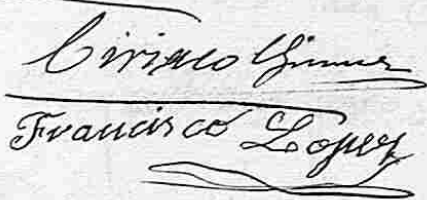 Ciriaco Gimenez
Francisco Lopez